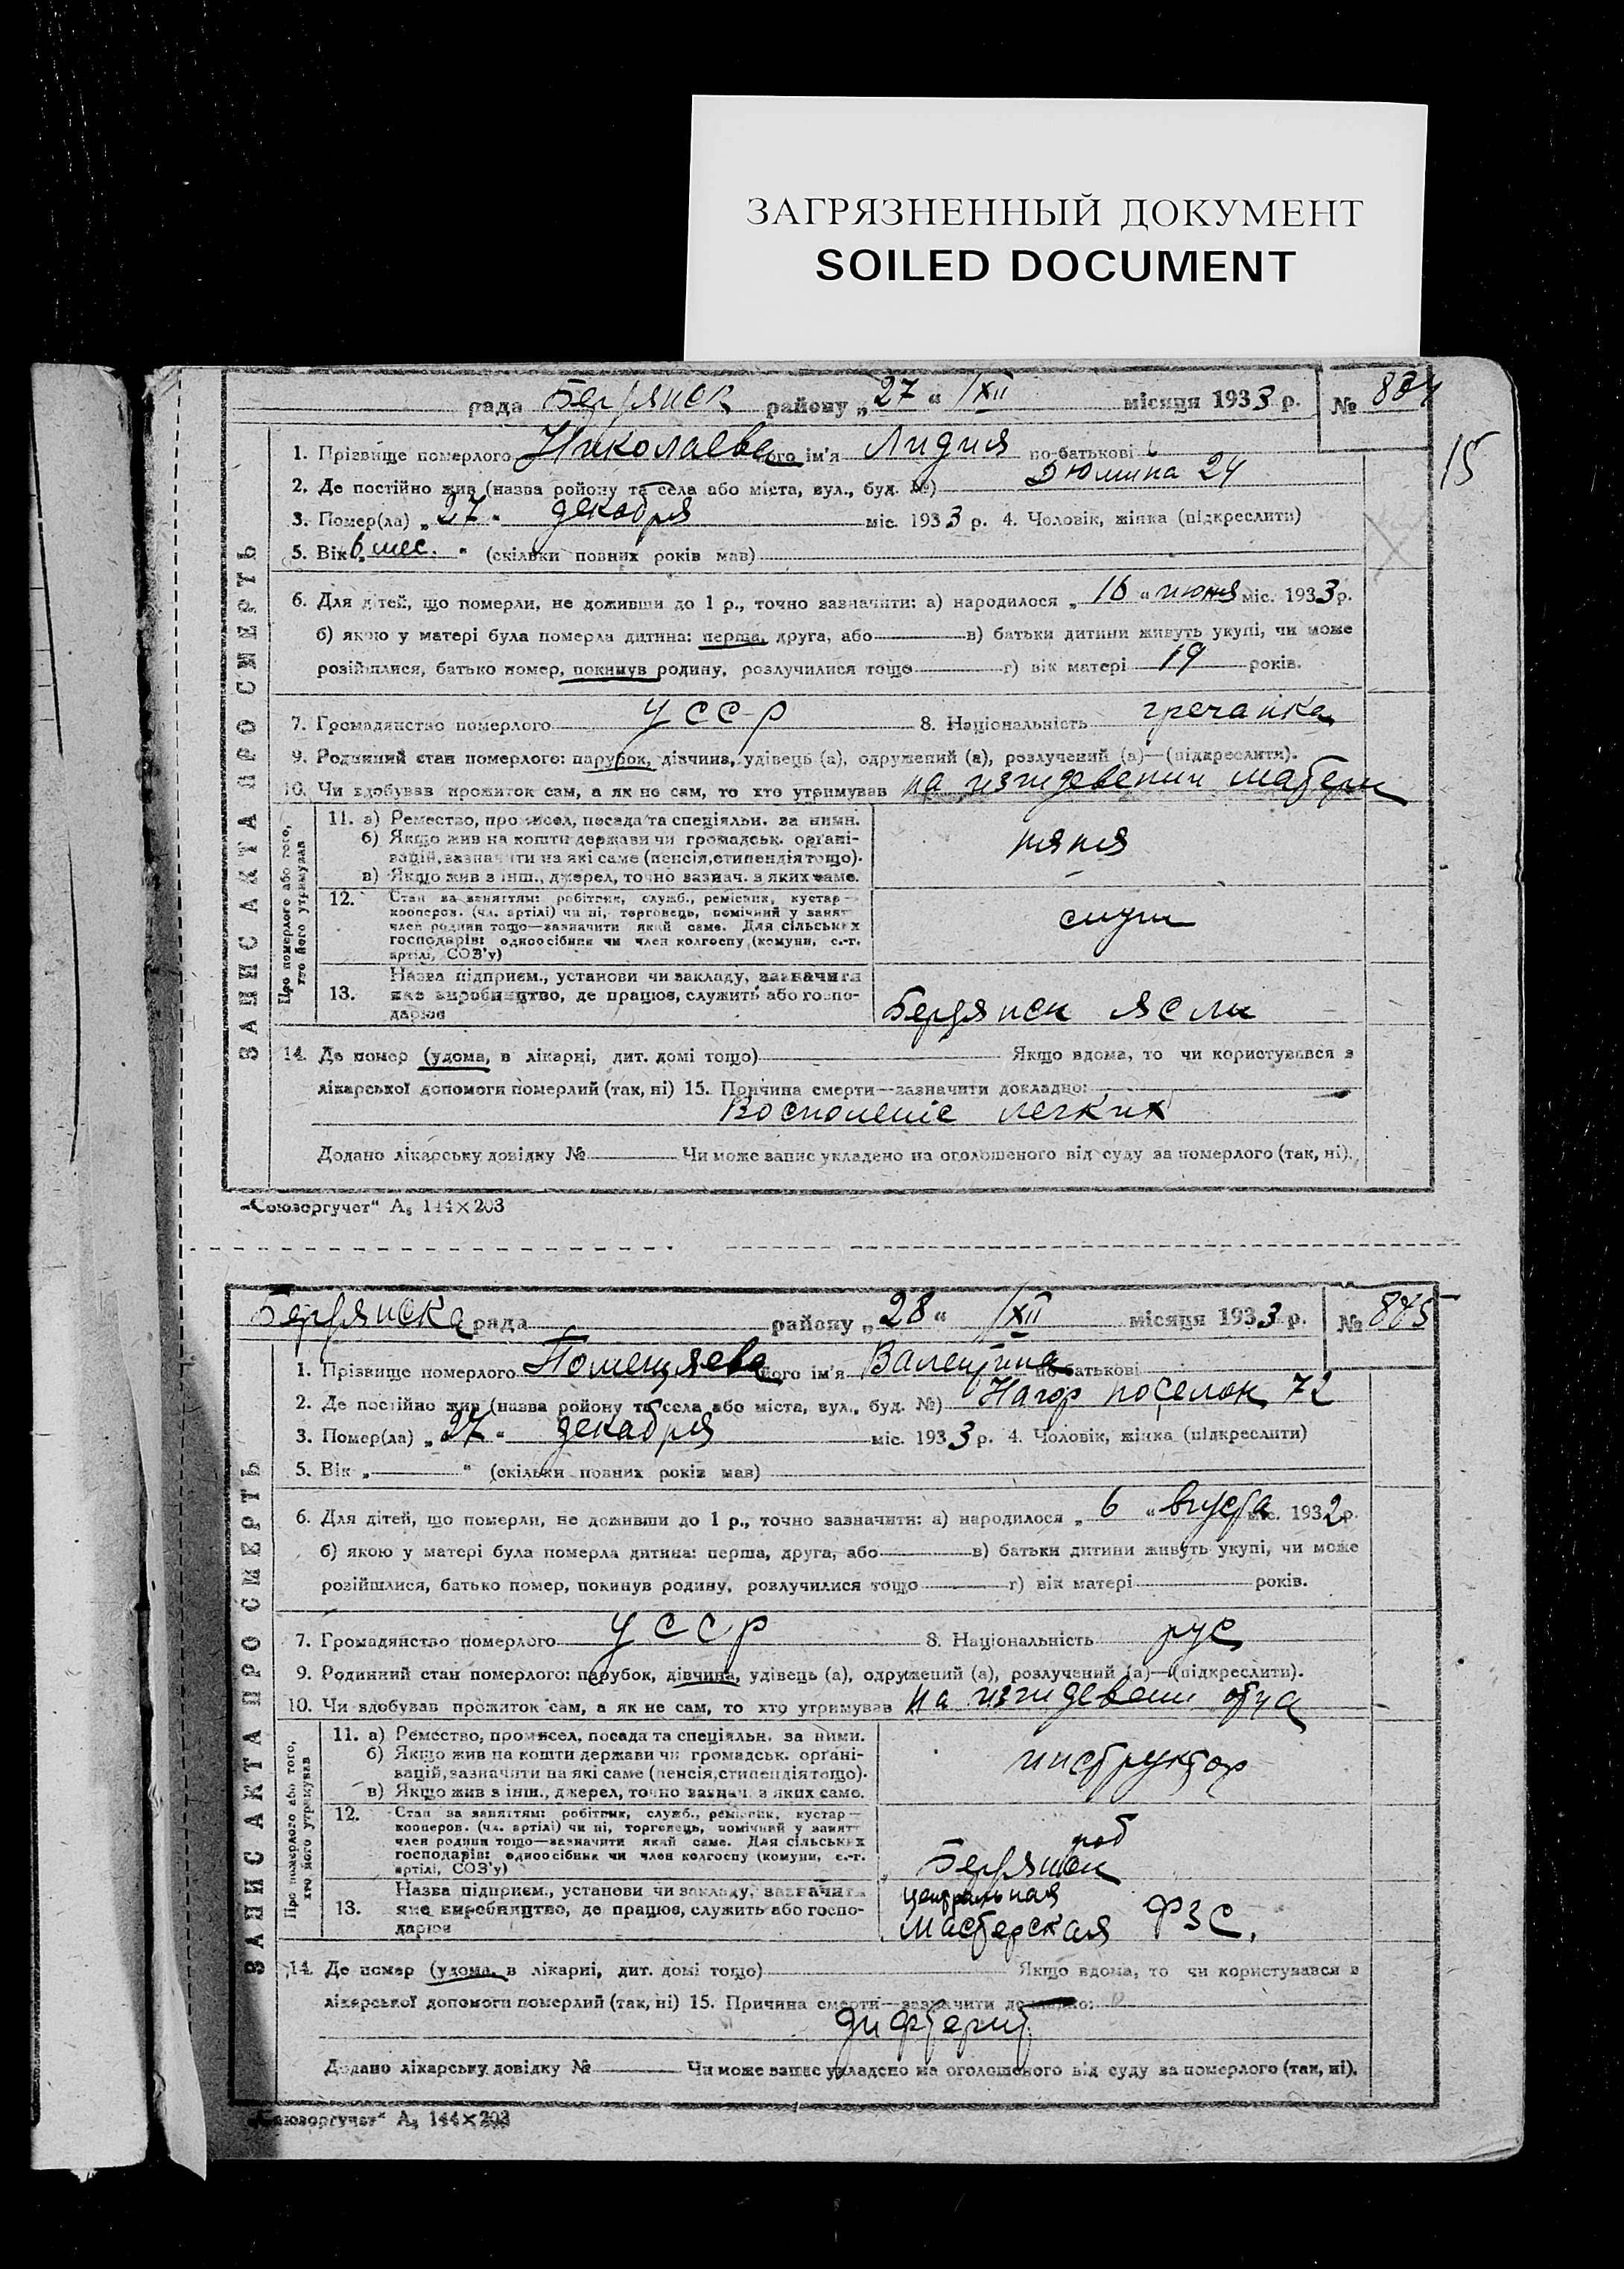 ЗАГРЯЗНЕННЫЙ ДОКУМЕНТ
SOILED DOCUMENT
рада Бердянск району „27“ /XII місяця 1933 р. № 884
15
1. Прізвище померлого Николаева його ім'я Лидия по-батькові
2. Де постійно жив (назва району та села або міста, вул., буд. №) Дюмина 24
3. Помер(ла) „27“ декабря міс. 1933 р. 4. Чоловік, жінка (підкреслити)
5. Вік „6 мес.“ (скільки повних років мав)
6. Для дітей, що померли, не доживши до 1 р., точно зазначити: а) народилося „16“ июня міс. 1933 р.
б) якою у матері була померла дитина: перша, друга, або в) батьки дитини живуть укупі, чи може
розійшлися, батько помер, покинув родину, розлучилися тощо г) вік матері 19 років.
7. Громадянство померлого УССР 8. Національність гречанка
9. Родинний стан померлого: парубок, дівчина, удівець (а), одружений (а), розлучений (а)—(підкреслити).
10. Чи здобував прожиток сам, а як не сам, то хто утримував на изждевении матери
ЗАПИС АКТА ПРО СМЕРТЬ
Про померлого або того, хто його утримував
11. а) Ремество, промисел, посада та спеціяльн. за ними.
б) Якщо жив на кошти держави чи громадськ. органі-
зацій, зазначити на які саме (пенсія, стипендія тощо).
в) Якщо жив з інш., джерел, точно зазнач. з яких саме.
няня
12. Стан за заняттям: робітник, служб., ремісник, кустар—
кооперов. (чл. артілі) чи ні, торговець, помічний у занят.
член родини тощо—зазначити який саме. Для сільських
господарів: одноосібник чи член колгоспу (комуни, с.-г.
артілі, СОЗ'у)
служ
13. Назва підприєм., установи чи закладу, зазначити
яке виробництво, де працює, служить або госпо-
дарює
Бердянск ясли
14. Де помер (удома, в лікарні, дит. домі тощо) Якщо вдома, то чи користувався з
лікарської допомоги померлий (так, ні) 15. Причина смерти—зазначити докладно:
Восполение легких
Додано лікарську довідку № Чи може запис укладено на оголошеного від суду за померлого (так, ні).
„Союзоргучет“ А₅ 144×203
Бердянска рада району „28“ /XII місяця 1933 р. № 885
1. Прізвище померлого Помещяева його ім'я Валентина по-батькові
2. Де постійно жив (назва району та села або міста, вул., буд. №) Нагор поселок 72
3. Помер(ла) „27“ декабря міс. 1933 р. 4. Чоловік, жінка (підкреслити)
5. Вік „ “ (скільки повних років мав)
6. Для дітей, що померли, не доживши до 1 р., точно зазначити: а) народилося „6“ вгуста міс. 1932 р.
б) якою у матері була померла дитина: перша, друга, або в) батьки дитини живуть укупі, чи може
розійшлися, батько помер, покинув родину, розлучилися тощо г) вік матері років.
7. Громадянство померлого УССР 8. Національність рус
9. Родинний стан померлого: парубок, дівчина, удівець (а), одружений (а), розлучений (а)—(підкреслити).
10. Чи здобував прожиток сам, а як не сам, то хто утримував на изждевении отца
ЗАПИС АКТА ПРО СМЕРТЬ
Про померлого або того, хто його утримував
11. а) Ремество, промисел, посада та спеціяльн. за ними.
б) Якщо жив на кошти держави чи громадськ. органі-
зацій, зазначити на які саме (пенсія, стипендія тощо).
в) Якщо жив з інш., джерел, точно зазнач. з яких саме.
инструктор
12. Стан за заняттям: робітник, служб., ремісник, кустар—
кооперов. (чл. артілі) чи ні, торговець, помічний у занят.
член родини тощо—зазначити який саме. Для сільських
господарів: одноосібник чи член колгоспу (комуни, с.-г.
артілі, СОЗ'у)
роб
Бердянск
13. Назва підприєм., установи чи закладу, зазначити
яке виробництво, де працює, служить або госпо-
дарює
центральная
мастерская ФЗС.
14. Де помер (удома, в лікарні, дит. домі тощо) Якщо вдома, то чи користувався з
лікарської допомоги померлий (так, ні) 15. Причина смерти—зазначити докладно:
дифтерит
Додано лікарську довідку № Чи може запис укладено на оголошеного від суду за померлого (так, ні).
„Союзоргучет“ А₅ 144×203